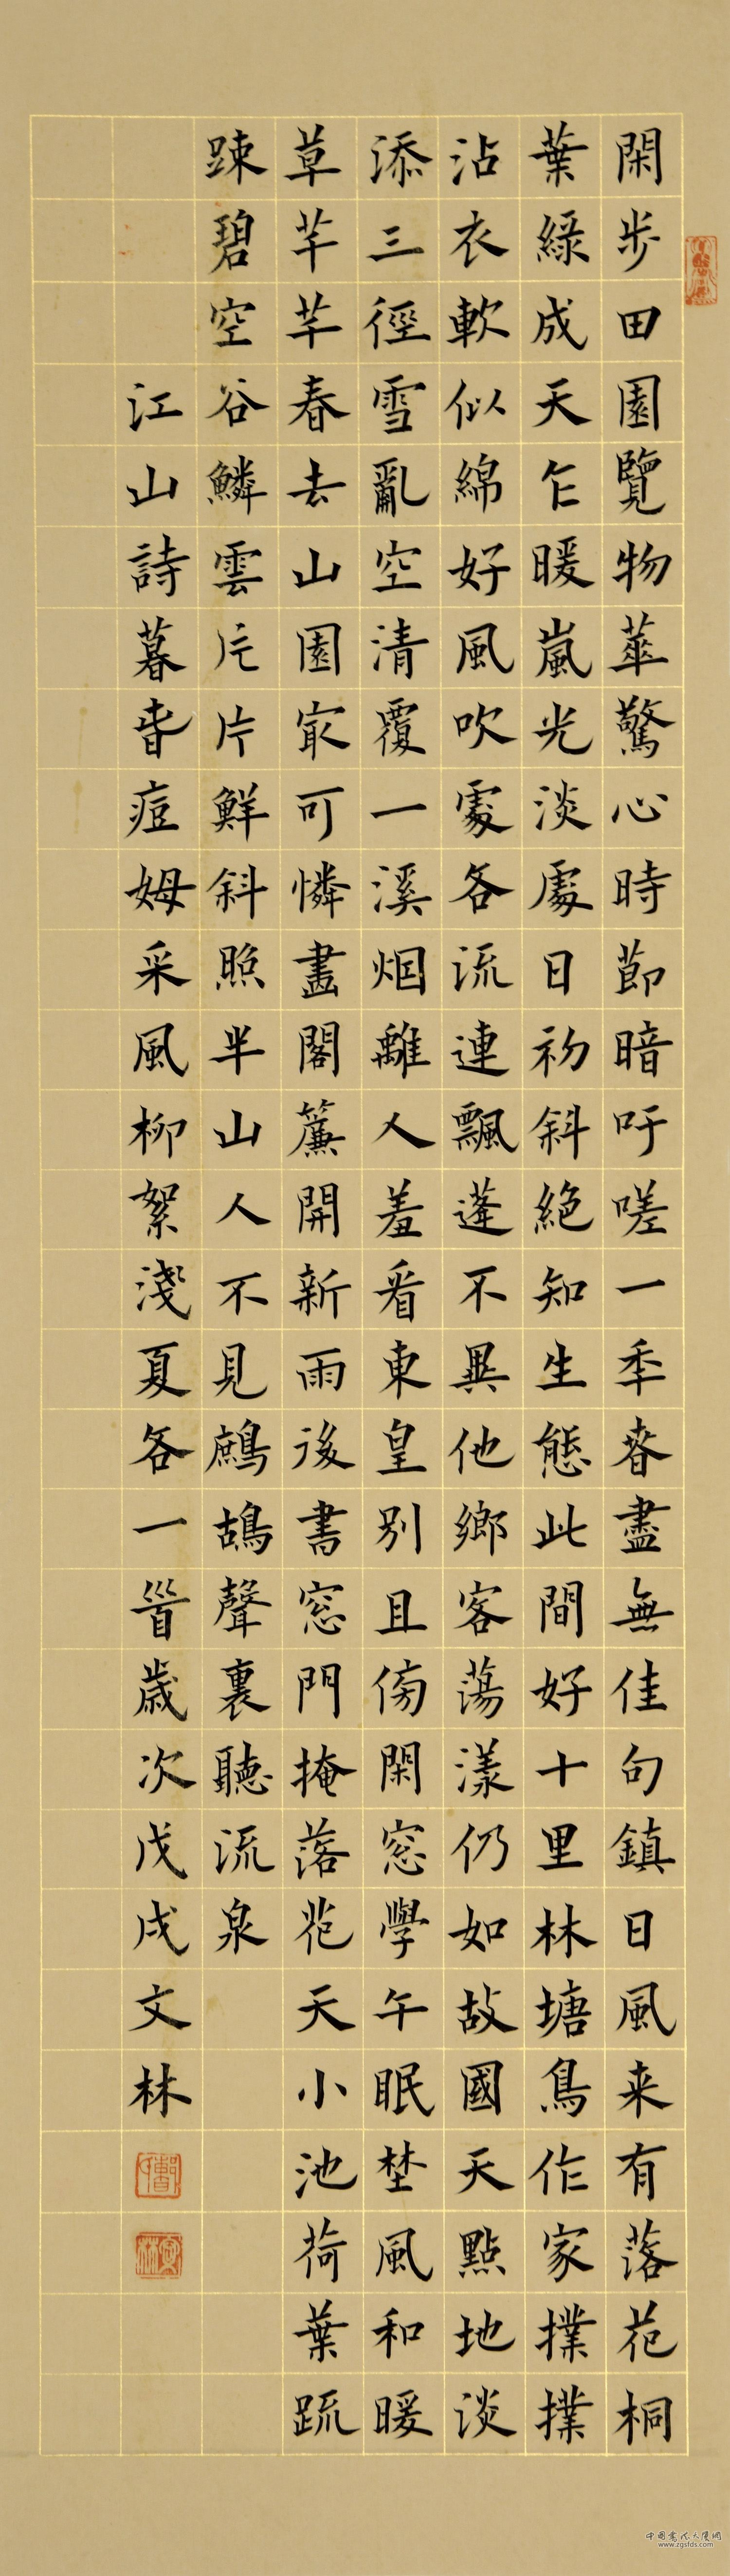 閑步田園覽物華驚心時節暗吁嗟一季春盡無佳句鎮日風来有落花桐
葉綠成天乍暖嵐光淡處日初斜絕知生態此間好十里林塘鳥作家撲撲
沾衣軟似綿好風吹處各流連飄蓬不異他鄉客蕩漾仍如故國天點地淡
添三徑雪亂空清覆一溪烟離人羞看東皇別且傍閑窓學午眠埜風和暖
草芊芊春去山園冣可憐畫閣簾開新雨後書窓門掩落花天小池荷葉疏
踈碧空谷鱗雲片片鮮斜照半山人不見鷓鴣聲裏聽流泉
江山詩暮春痘姆采風柳絮淺夏各一首歲次戊戌文林
中国書法大廈網
www.zgsfds.com